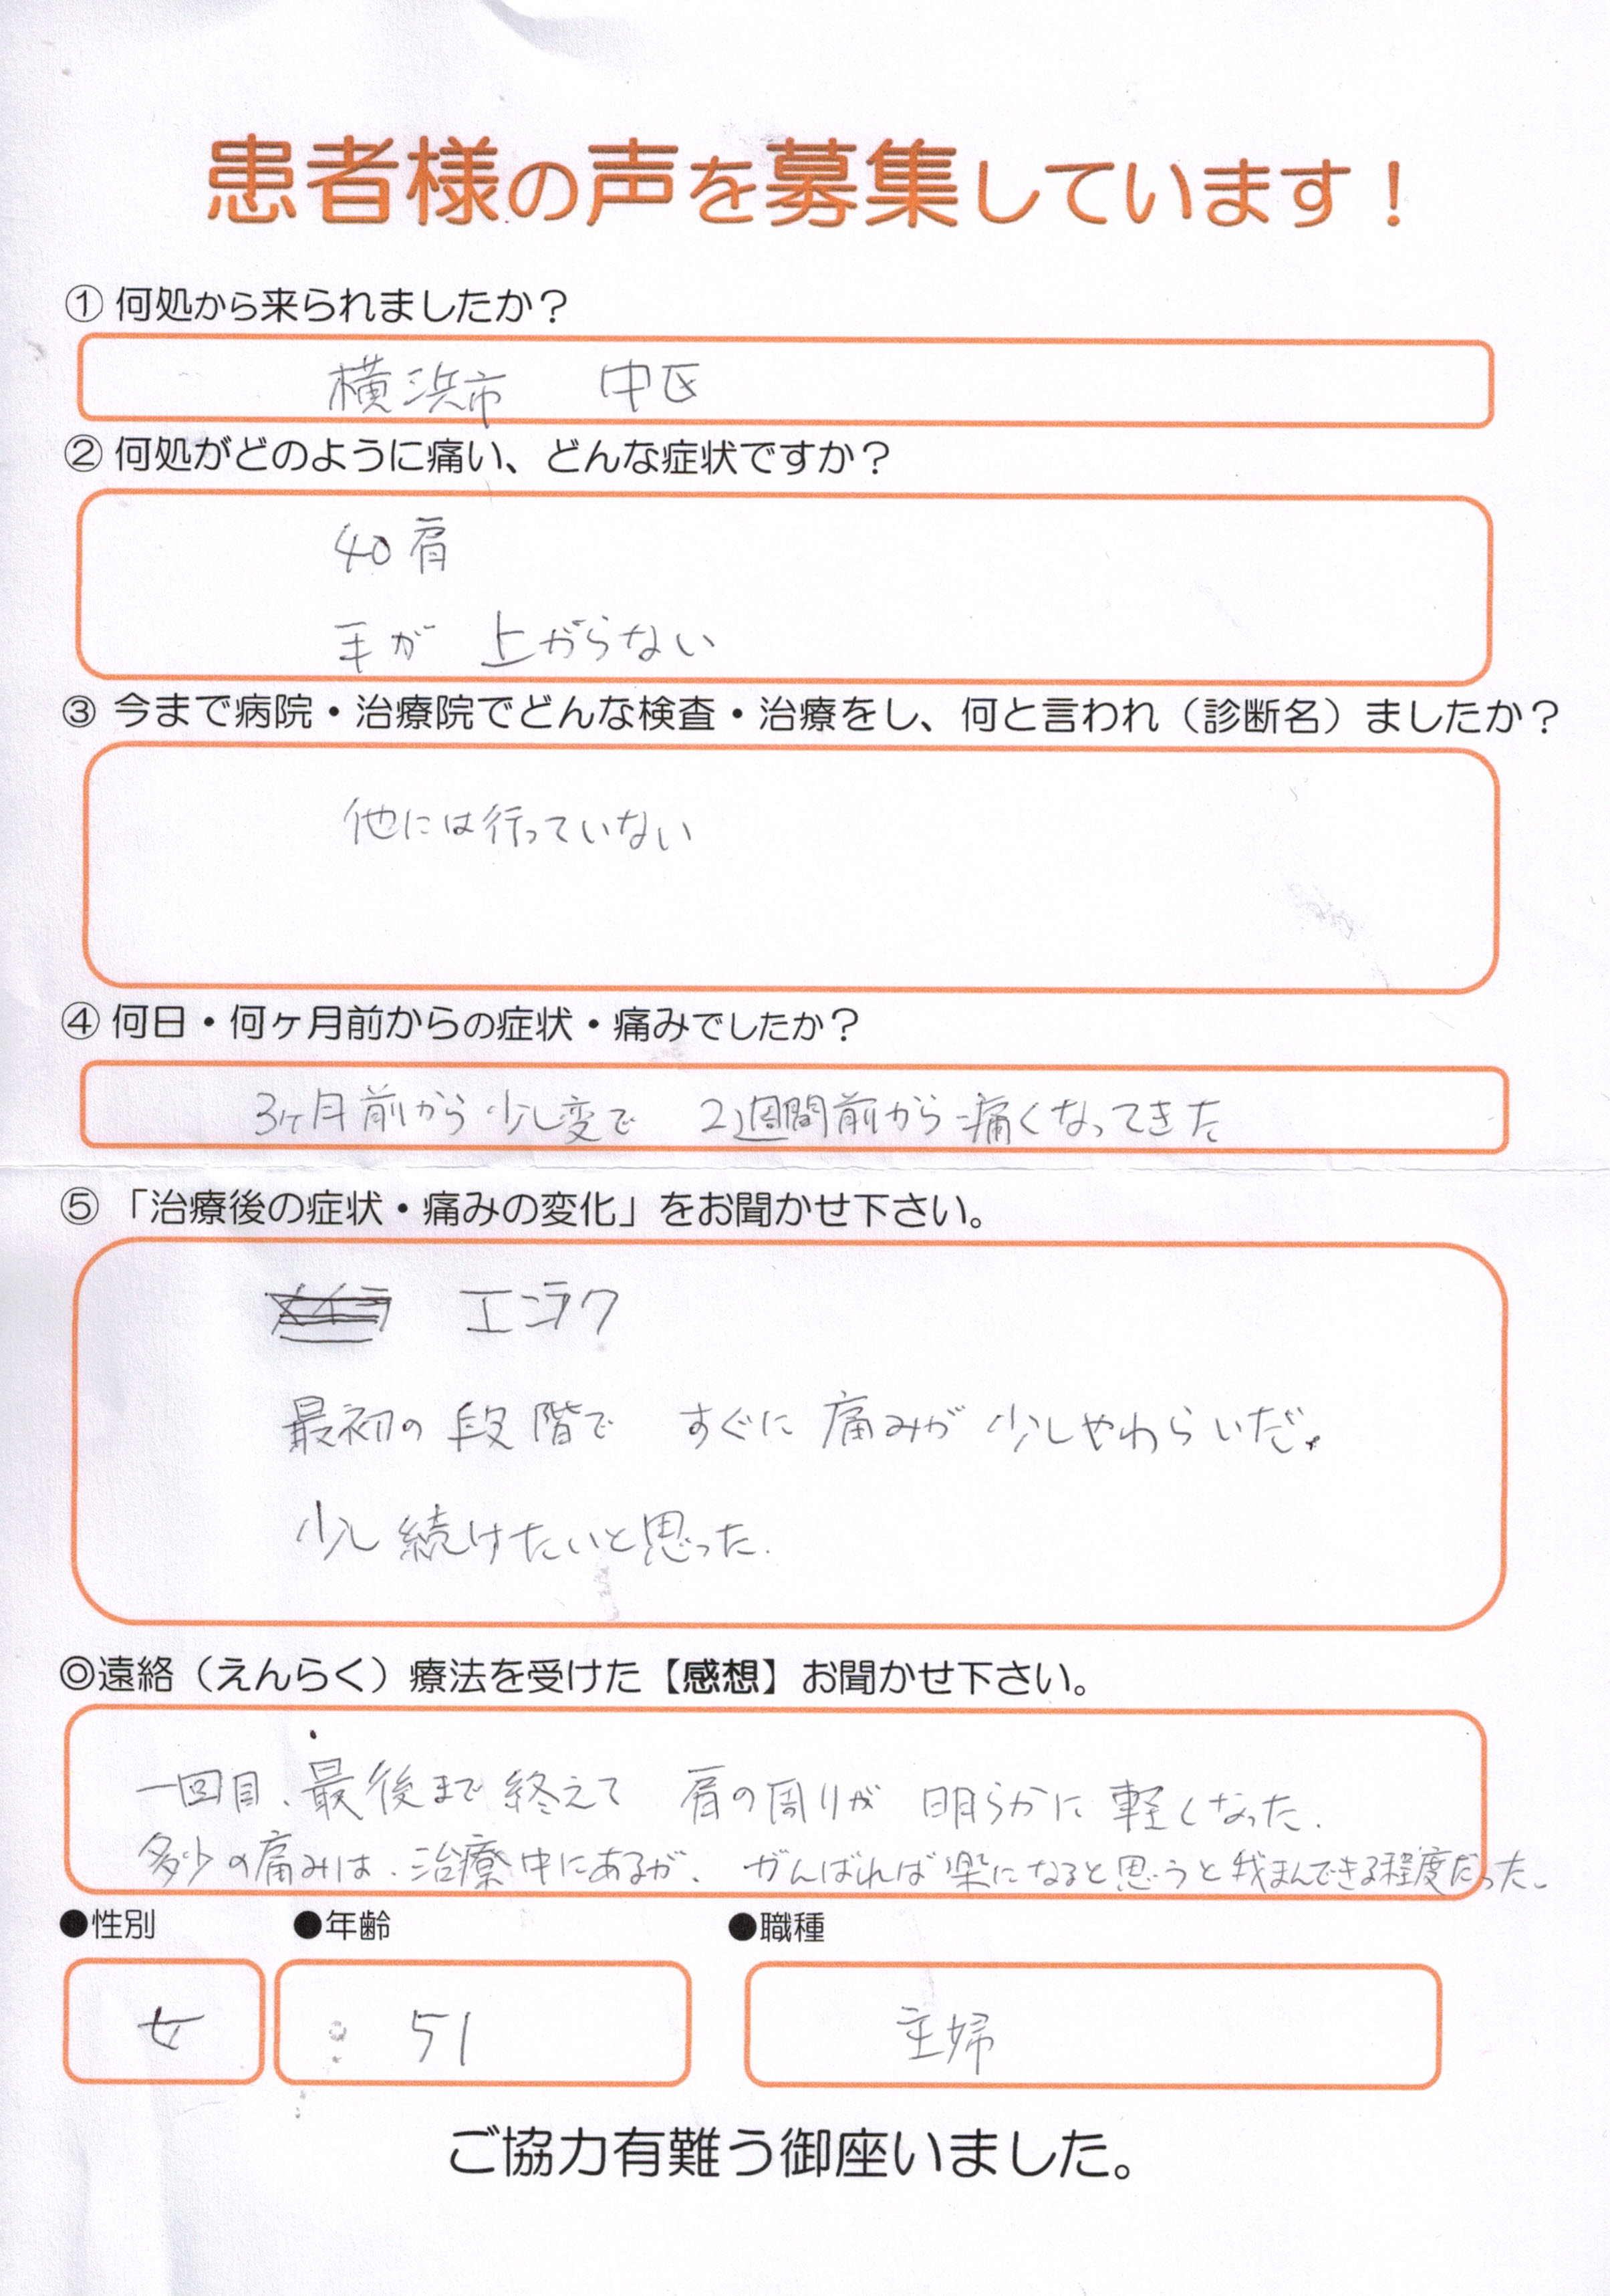 患者様の声を募集しています！
① 何処から来られましたか？
横浜市 中区
② 何処がどのように痛い、どんな症状ですか？
40肩
手が 上がらない
③ 今まで病院・治療院でどんな検査・治療をし、何と言われ（診断名）ましたか？
他には行っていない
④ 何日・何ヶ月前からの症状・痛みでしたか？
3ヶ月前から少し変で 2週間前から痛くなってきた
⑤ 「治療後の症状・痛みの変化」をお聞かせ下さい。
エンラク
最初の段階で すぐに痛みが少しやわらいだ。
少し続けたいと思った.
◎遠絡（えんらく）療法を受けた【感想】お聞かせ下さい。
一回目、最後まで終えて 肩の周りが 明らかに軽くなった.
多少の痛みは、治療中にあるが、がんばれば楽になると思うと我まんできる程度だった。
●性別 ●年齢 ●職種
女 51 主婦
ご協力有難う御座いました。